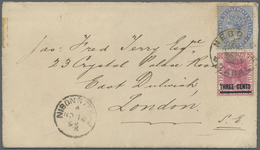 Jas: Fred Terry Esqre
23 Crystal Palace Road
East Dulwich
London.
S.E
THREE CENTS
NEGO